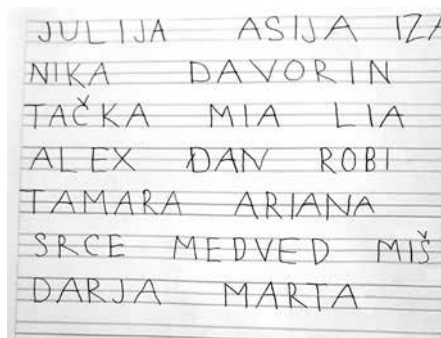 JULIJA ASIJA IZA
NIKA DAVORIN
TAČKA MIA LIA
ALEX ĐAN ROBI
TAMARA ARIANA
SRCE MEDVED MIŠ
DARJA MARTA